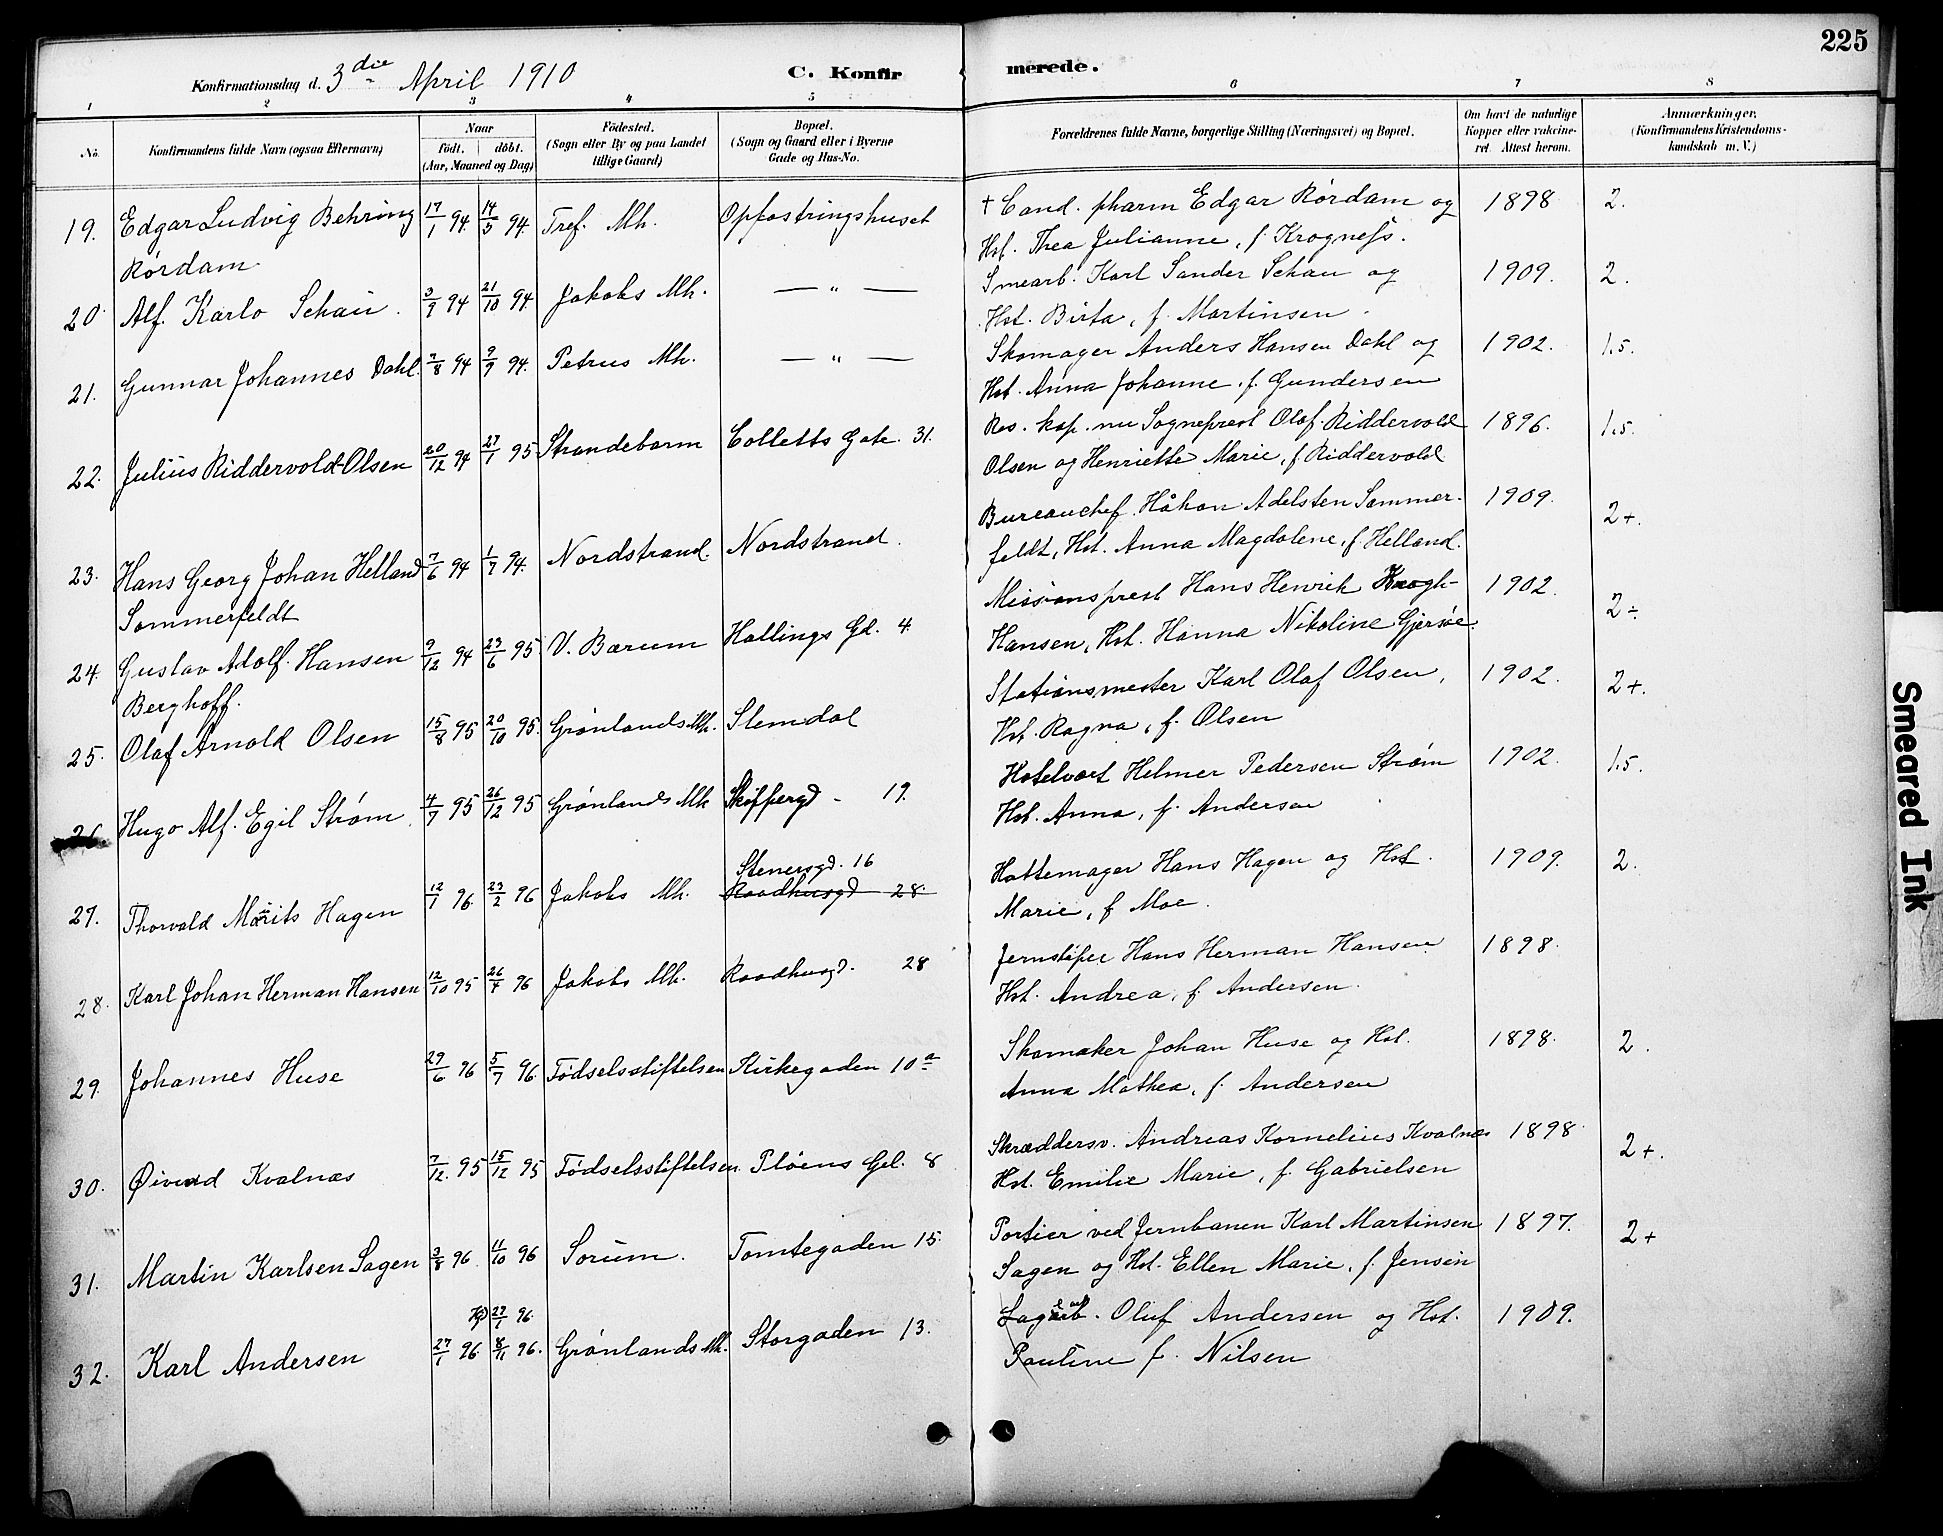 225
Konfirmationsdag d. 3die April 1910
C. Konfir merede.
1 2 3 4 5 6 7 8
No.
Konfirmandens fulde Navn (ogsaa Efternavn)
Naar
født. døbt.
(Aar, Maaned og Dag)
Fødested.
(Sogn eller By og paa Landet
tillige Gaard)
Bopæl.
(Sogn og Gaard eller i Byerne
Gade og Hus-No.
Forældrenes fulde Navne, borgerlige Stilling (Næringsvei) og Bopæl.
Om havt de naturlige
Kopper eller vakcine-
ret. Attest herom.
Anmærkninger.
(Konfirmandens Kristendoms-
kundskab m. V.)
19. Edgar Ludvig Behring 17/1 94. 14/5 94. Tref. Mh. Opfostringshuset † Cand. pharm Edgar Rördam og 1898 2.
Rördam Hst. Thea Julianne, f. Krogness.
20. Alf. Karlo Schau. 3/9 94 21/10 94. Jakobs Mh. — " — Smearb. Karl Sander Schau og 1909. 2.
Hst. Birta, f. Martinsen.
21. Gunnar Johannes Dahl. 7/8 94 9/9 94. Petrus Mh. — " — Skomager Anders Hansen Dahl og 1902. 1,5.
Hst. Anna Johanne, f. Gundersen
22. Julius Riddervold-Olsen 20/12 94 27/1 95 Strandebarm Colletts Gate. 31. Res. kap. nu Sogneprest Olaf Riddervold 1896. 1,5.
Olsen og Henriette Marie, f. Riddervold
23. Hans Georg Johan Helland 7/6 94 1/7 94. Nordstrand. Nordstrand. Bureauchef. Håkon Adelsten Sommer- 1909. 2+.
Sommerfeldt feldt, Hst. Anna Magdalene, f. Helland.
24. Gustav Adolf. Hansen 9/12 94 23/6 95 V. Bærum Hallings Gd. 4. Missionsprest Hans Henrik Krogh- 1902. 2÷
Berghoff. Hansen, Hst. Hanna Nikoline Gjersøe.
25. Olaf Arnold Olsen 15/8 95 20/10 95. Grønlands Mh. Slemdal Stationsmester Karl Olaf Olsen, 1902. 2+.
Hst. Ragna, f. Olsen
26. Hugo Alf. Egil Strøm 4/7 95 26/12 95 Grønlands Mh Skippergd - 19. Hotelvært Helmer Pedersen Strøm 1902. 1,5.
Hst. Anna, f. Andersen
Stenersgd. 16
27. Thorvald Marits Hagen 12/1 96 23/2 96 Jakobs Mh. Raadhusgd 28. Hattemager Hans Hagen og Hst. 1909. 2.
Marie, f Moe.
28. Karl Johan Herman Hansen 12/10 95 26/4 96 Jakobs Mh. Raadhusgd. 28 Jernstøper Hans Herman Hansen 1898.
Hst. Andrea, f. Andersen.
29. Johannes Huse 29/6 96 5/7 96 Fødselsstiftelsen Kirkegaden 10a Skomaker Johan Huse og Hst. 1898. 2.
Anna Mathea, f. Andersen
30. Øivind Kvalnæs 7/12 95 15/12 95 Fødselsstiftelsen. Pløens Gd. 8 Skræddersv. Andreas Kornelius Kvalnæs 1898 2+.
Hst. Emilie Marie, f. Gabrielsen
31. Martin Karlsen Sagen 3/8 96. 11/10 96 Sørum. Tomtegaden 15. Portier ved Jernbanen Karl Martinsen 1897. 2+
Sagen og Hst. Ellen Marie, f. Jensen
27/1 96.
32. Karl Andersen 27/1 96 8/11 96. Grønlands Mh. Storgaden 13. Oluf Andersen og Hst. 1909.
Pauline f. Nilsen
Smeared Ink